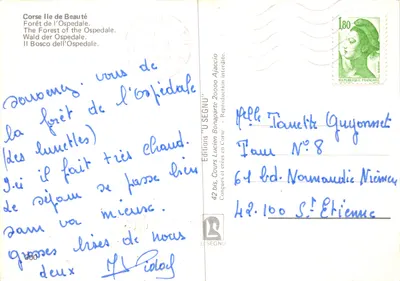 Corse Ile de Beauté
Forêt de l'Ospedale.
The Forest of the Ospedale.
Wald der Ospedale.
Il Bosco dell'Ospedale.
Souvenez vous de
la forêt de l'Ospédale
(les lunettes)
Ici il fait très chaud.
Le séjour se passe bien
Sam va mieux.
grosses bises de nous
deux
Editions "U SEGNU"
42 bis, Cours Lucien Bonaparte 20000 Ajaccio
Reproduction interdite.
U SEGNU
1,80
Melle Ginette Guyonnet
Tour N° 8
61 bd. Normandie Niémen
42.100 St Etienne